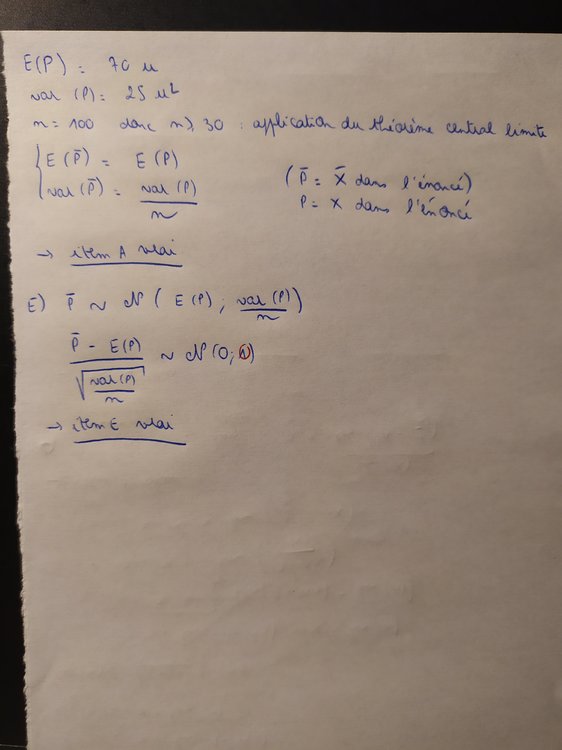 E(P) = 70 u
var (P) = 25 u²
n = 100 donc n ≥ 30 : application du théorème central limite
{ E(P̄) = E(P)
var(P̄) = var(P)/n
(P̄ = X̄ dans l'énoncé)
P = X dans l'énoncé
→ item A vrai
E) P̄ ~ N( E(P) ; var(P)/n )
(P̄ - E(P)) / √(var(P)/n) ~ N(0; 1)
→ item E vrai